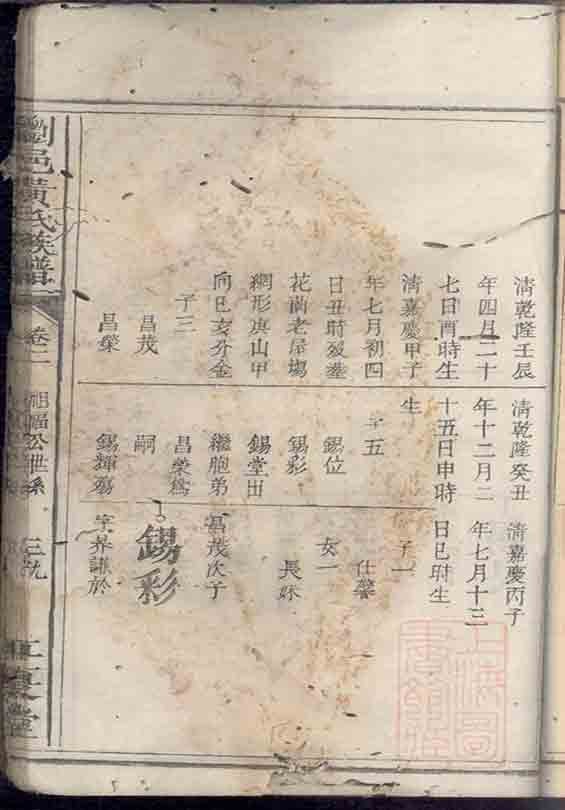 清乾隆壬辰
年四月二十
七日酉時生
清嘉慶甲子
年七月初四
日丑時歿葬
花萠老屋塲
網形庚山甲
向巳亥分金
子三
昌茂
昌榮
清乾隆癸丑
年十二月二
十五日申時
生
子五
錫位
錫彩
錫堂出
繼胞弟
昌榮爲
嗣
錫輝殤
清嘉慶丙子
年七月十三
日巳時生
子一
仕馨
女一
長妹
昌茂次子
錫彩
字界謙於
瀏邑黃氏族譜
卷二
祖福公世系
三九
江夏堂
上海圖書館藏